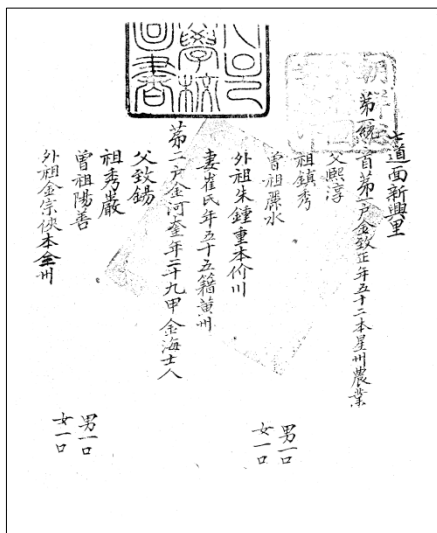 道面新興里
第一統首第一戶金致正年五十二本星州農業
父熙淳
祖鎮秀
曾祖水
外祖朱鍾重本价川
男一口
女一口
妻崔氏年五十五籍黃州
第二戶金河奎年二十九甲金海士人
父致錫
祖秀嚴
曾祖陽善
外祖金宗俠本全州
男一口
女一口
學校
圖書